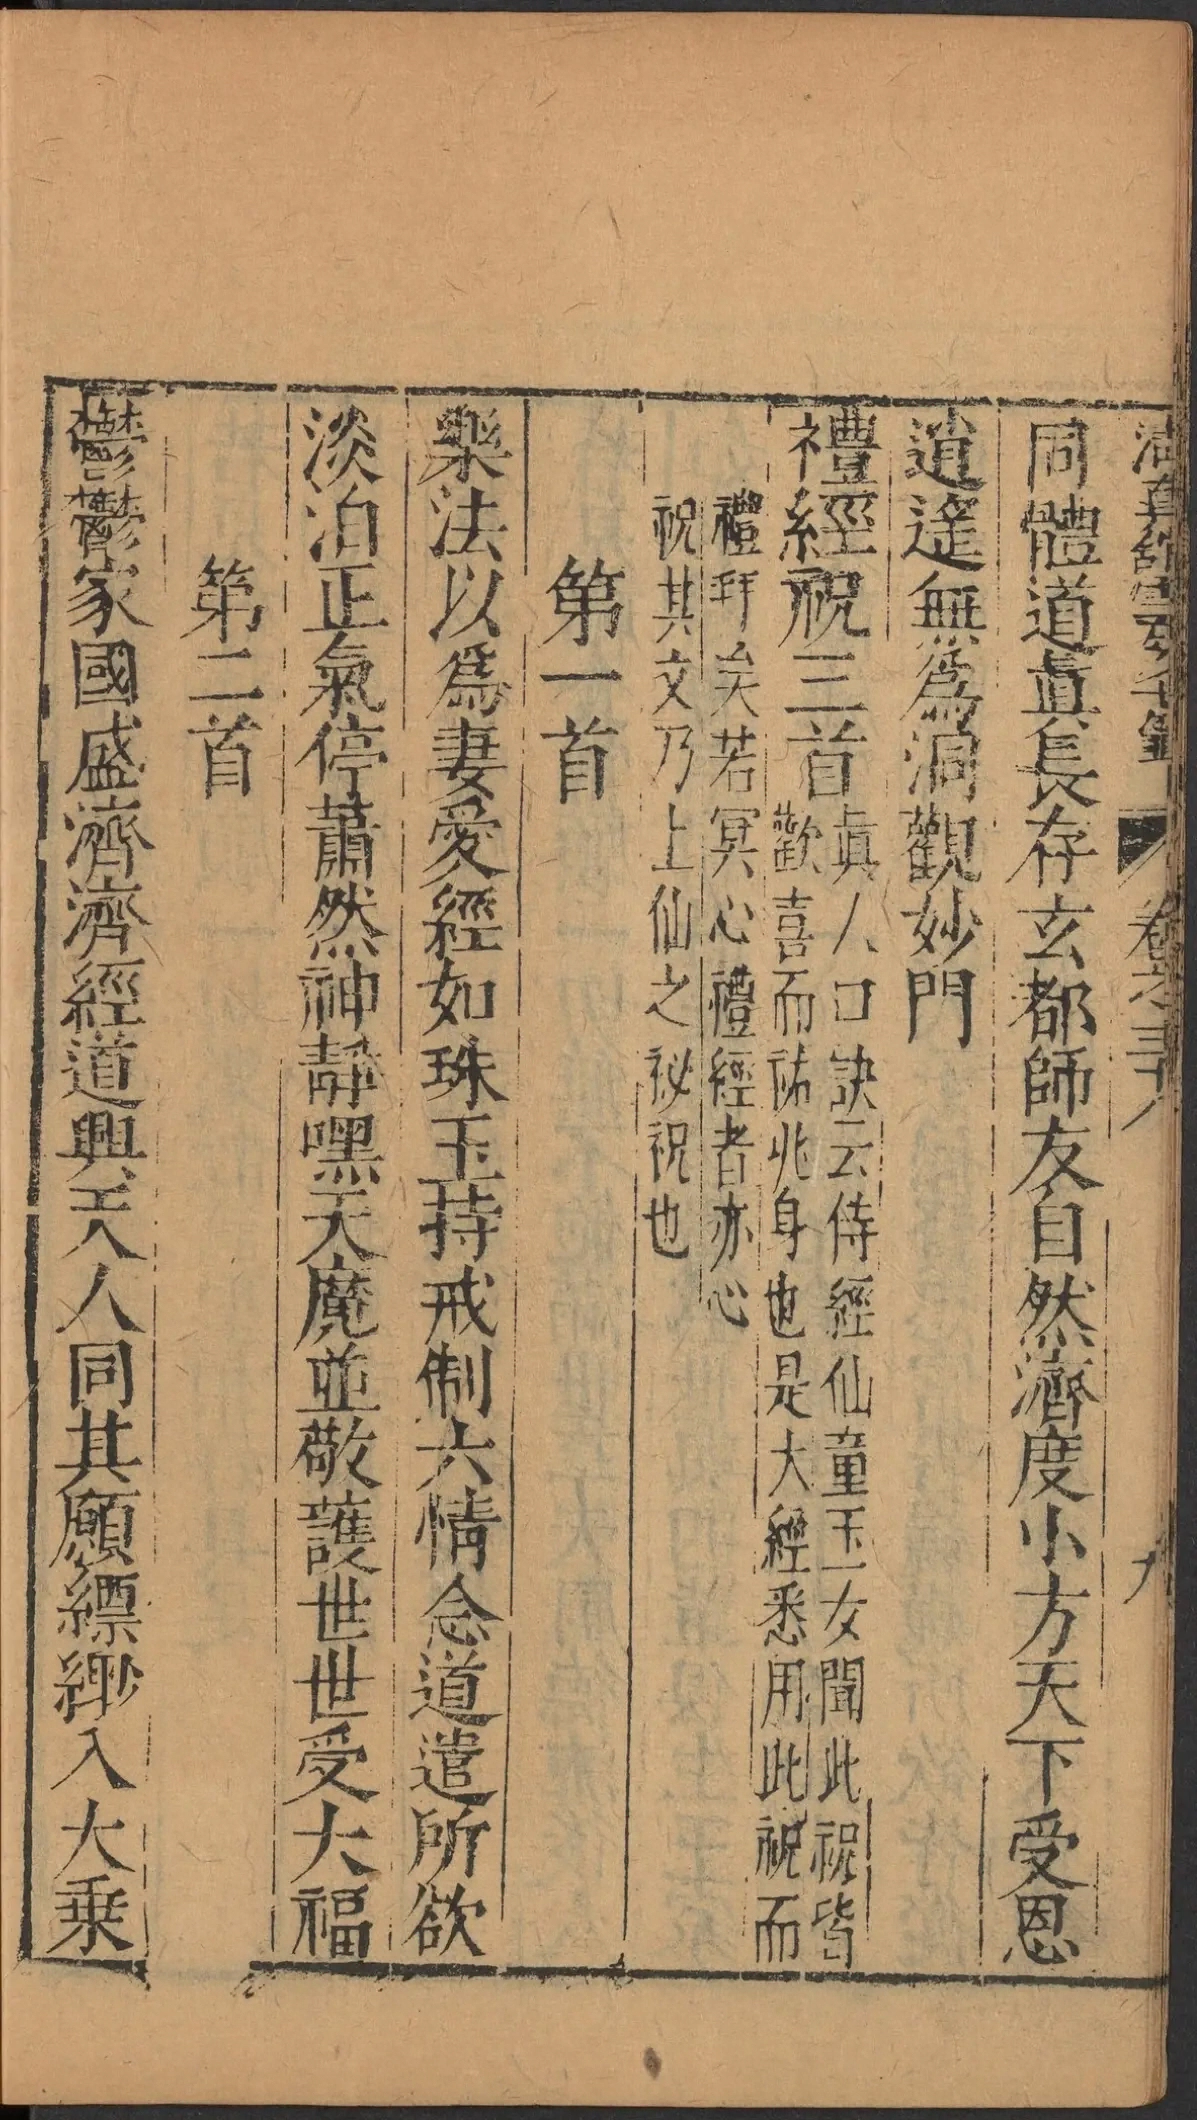 清真館雲笈七籤 卷之三十八 九
同體道眞長存玄都師友自然濟度小方天下受恩
逍遙無爲洞觀妙門
禮經祝三首眞人口訣云侍經仙童玉女聞此祝皆
歡喜而祐兆身也是大經悉用此祝而
禮拜矣若冥心禮經者亦心
祝其文乃上仙之祕祝也
第一首
樂法以爲妻愛經如珠玉持戒制六情念道遣所欲
淡泊正氣停蕭然神靜嘿天魔並敬護世世受大福
第二首
鬱鬱家國盛濟濟經道興天人同其願縹緲入大乗